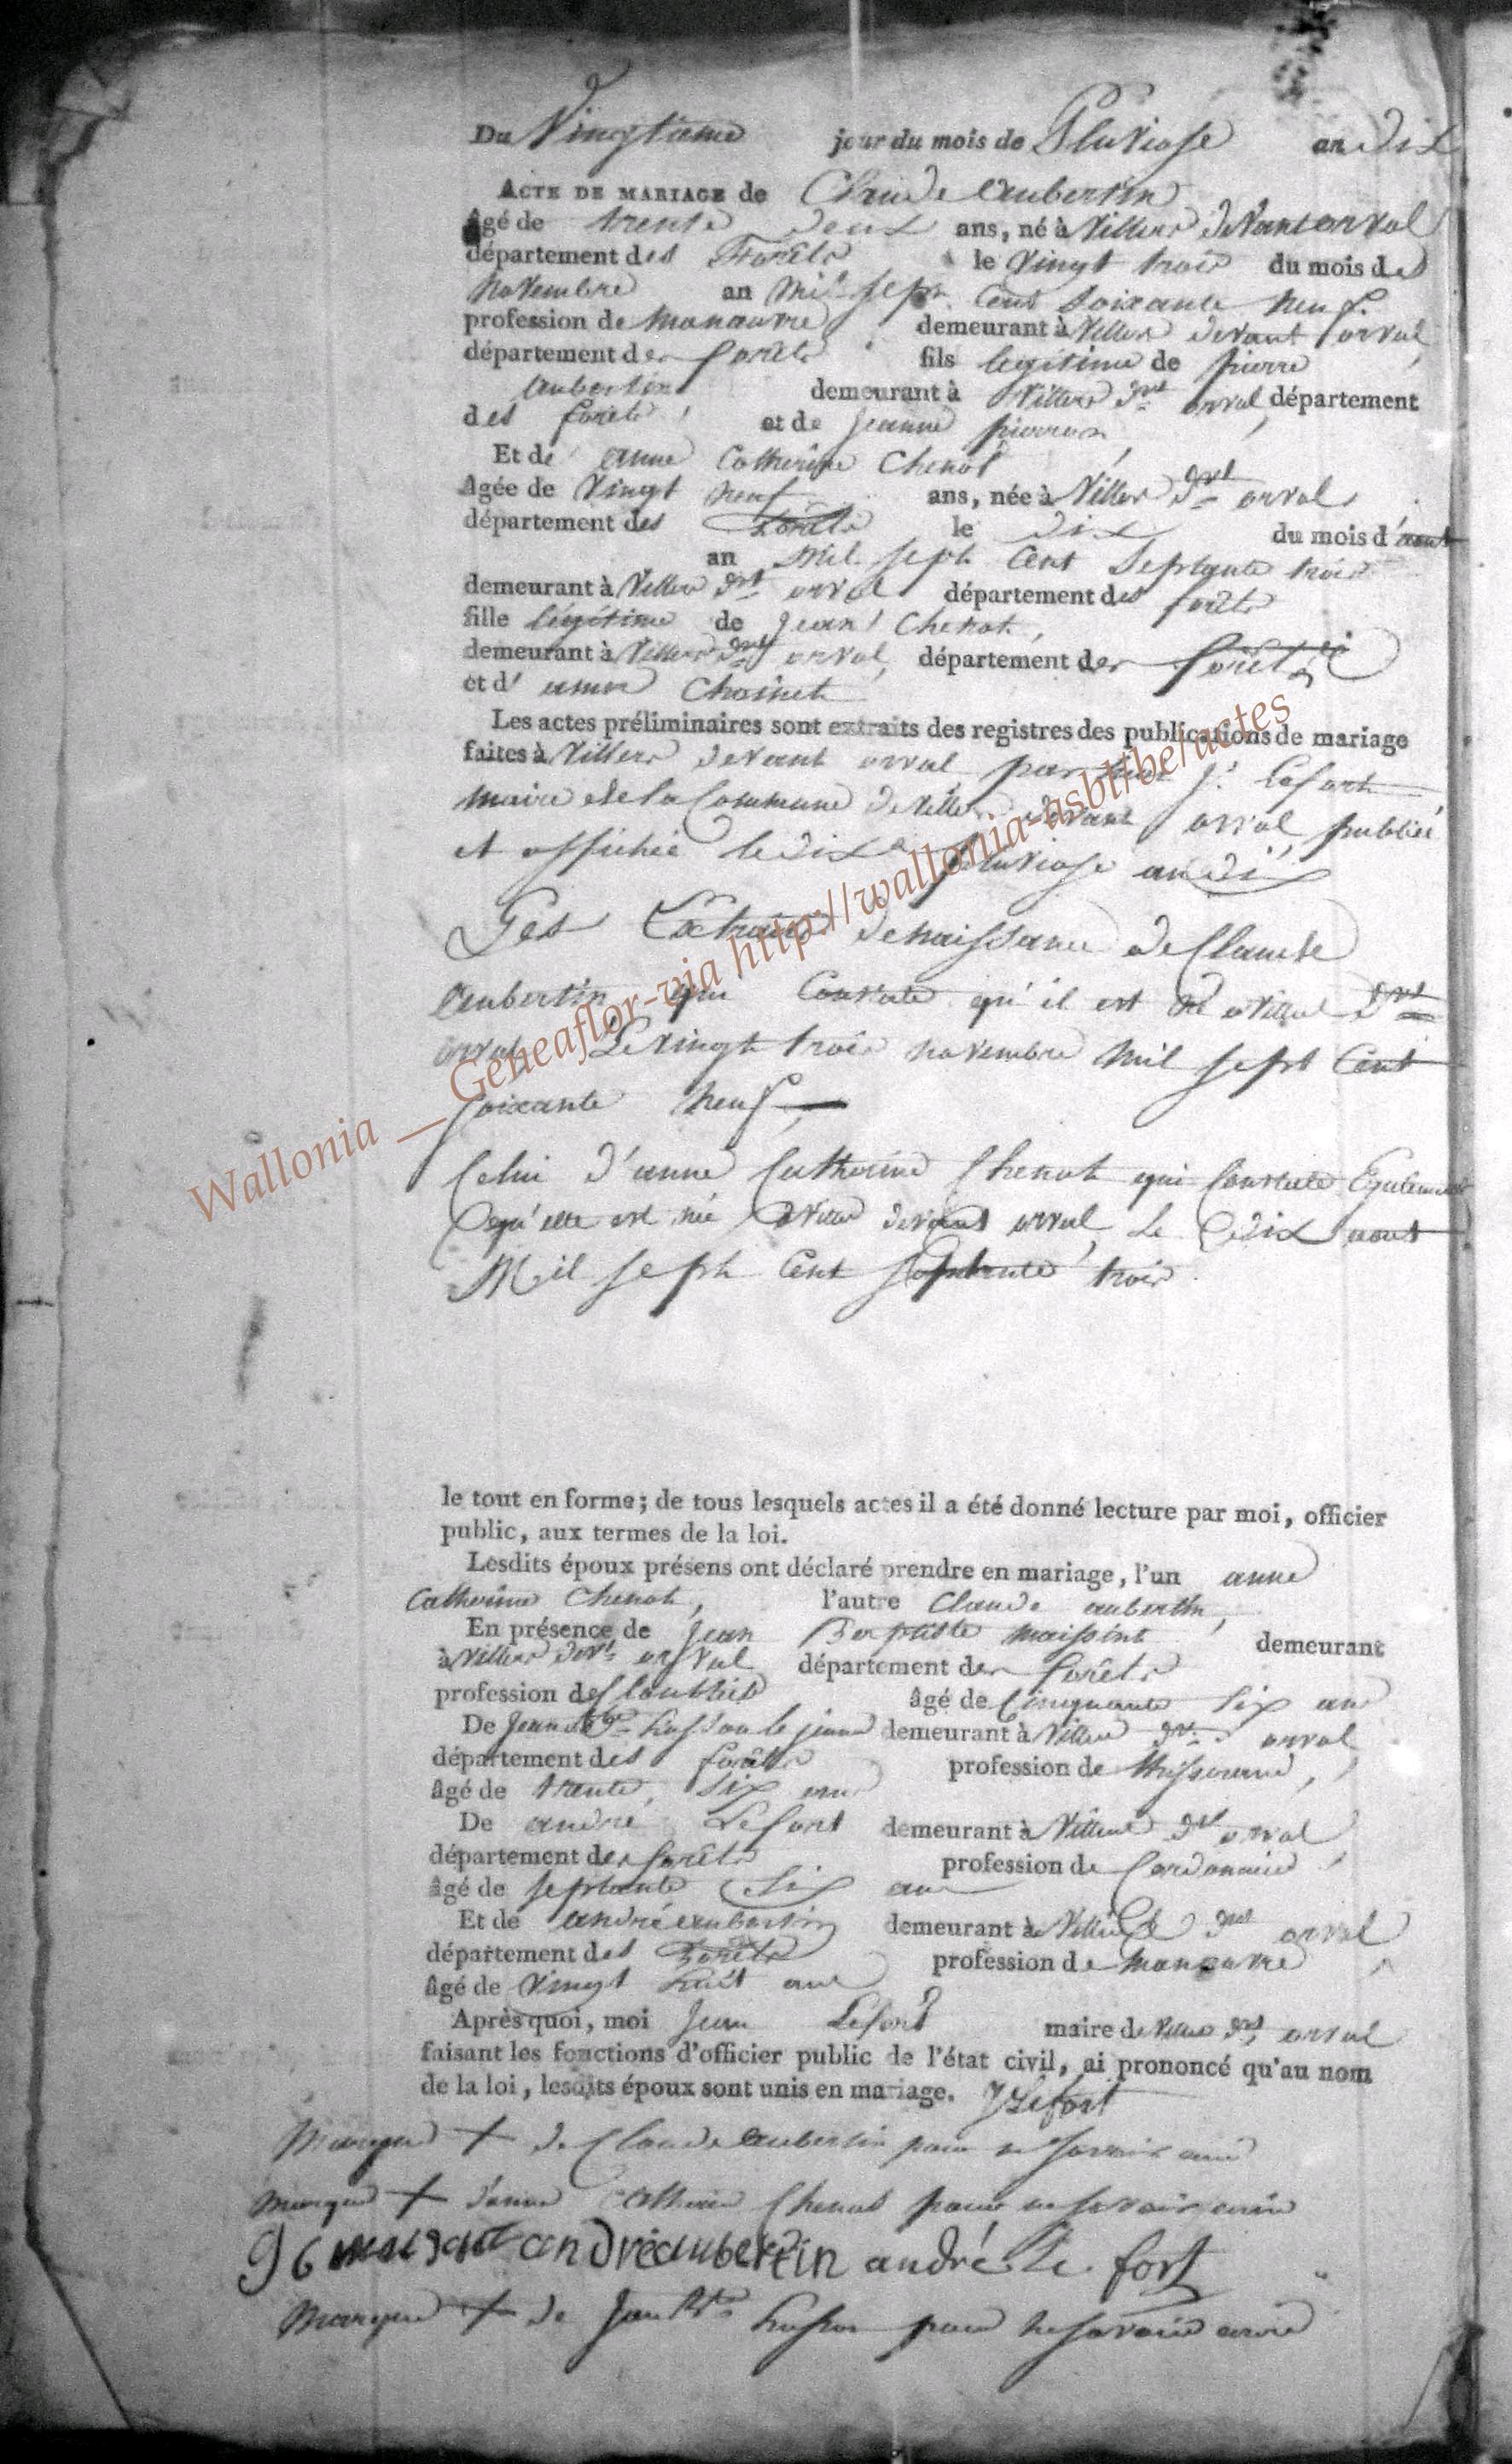 Du Vingtieme jour du mois de Pluviose an dix
ACTE DE MARIAGE de Claude aubertin
Âgé de trente deux ans, né à Villers devant orval
département des Forêts le vingt trois du mois de
novembre an mil sept cent soixante neuf.
profession de manœuvre demeurant à Villers devant orval
département des forêts fils legitime de pierre
aubertin demeurant à Villers dvt orval, département
des forêts, et de jeanne pierron
Et de anne Catherine Chenot
Âgée de Vingt neuf ans, née à Villers dvt orval
département des forêts le dix du mois d'aout
an mil sept cent septante trois
demeurant à Villers dvt orval département des forêts
fille légitime de jean Chenot,
demeurant à Villers dvt orval, département des forêts
et d' anne
Les actes préliminaires sont extraits des registres des publications de mariage
faites à Villers devant orval par J. Lefort
maire de la Commune de Villers devant orval, publié
et affiché le dix pluviose an dix
extrait de naissance de Claude
aubertin qui Constate qu'il est né a Villers dvt
orval Le vingt trois novembre mil sept Cent
soixante neuf
Celui d'anne Catherine Chenot qui Constate Egalement
qu'elle est née a Villers devant orval le dix aout
Mil sept Cent septante trois
le tout en forme; de tous lesquels actes il a été donné lecture par moi, officier
public, aux termes de la loi.
Lesdits époux présens ont déclaré prendre en mariage, l'un anne
Catherine Chenot, l'autre Claude aubertin,
En présence de Jean Baptiste maissint demeurant
à Villers devt orval département des forêts
profession de âgé de Cinquante six ans
De Jean Bte husson le jeune demeurant à Villers dvt orval
département des forêts profession de thisserand,
âgé de trente six ans
De andré Lefort demeurant à Villers dvt orval
département des forêts profession de Cordonnier
âgé de septante six ans
Et de andré aubertin demeurant à Villers dvt orval
département des Forêts profession de manœuvre
âgé de vingt huit ans
Après quoi, moi Jean Lefort maire de Villers dvt orval
faisant les fonctions d'officier public de l'état civil, ai prononcé qu'au nom
de la loi, lesdits époux sont unis en mariage. J Lefort
Marque + de Claude aubertin pour ne savoir écrire
marque + d'anne Catherine Chenot pour ne savoir écrire
andré aubertin andré le fort
Marque + de Jean Bte husson pour ne savoir écrire
Wallonia __Geneaflor-via http://wallonia-asbl/be/actes